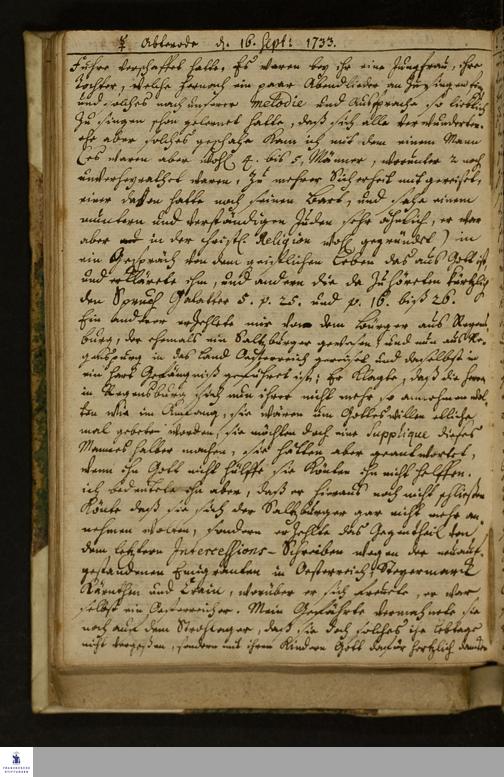 ☿ Abterode d. 16. Sept: 1733.
Fuhre verschaffet hatte, Es waren bey ihr eine Jungfrau, ihre
Tochter, welche hernach ein paar Abendlieder an zu singen fing
und solches nach unserer Melodie und Aussprache so lieblich
zu singen schon gelernet hatte, daß sich alle verwunderten.
ehe aber solches geschahe kam ich mit dem einem Mann
(es waren aber wohl 4. bis 5. Männer, worunter 2 noch
unverheyrathet waren, zu mehrer Sicherheit mit gereiset,
einer davon hatte noch seinen Bart, und sahe einem
muntern und verständigen Juden sehr ähnlich, er war
aber in der Christl. Religion wohl gegründet) in
ein Gespräch von dem geistlichen Leben das aus Gott ist
und erklärete ihm, und andern die da zuhöreten kürtzlich
den Spruch Galatter 5. v. 25. und v. 16. biß 26.
Ein anderer erzehlete mir von dem Bürger aus Regens
burg, der ehemals ein Saltzburger gewesen und nun aus Re-
genspurg in das Land Oesterreich gereiset und daselbst in
ein hart Gefängniß geführet ist; Er klagte, daß die Herren
in Regensburg sich nun ihrer nicht mehr so annehmen wol-
ten wie im Anfang, sie wären um Gottes willen etliche
mal gebeten worden, sie möchten doch eine Supplique dieses
Mannes halber machen, sie hätten aber geantwortet,
wenn ihm Gott nicht hülffe sie könten ihm nicht helffen.
ich bedeutete ihn aber, daß er hieraus noch nicht schließen
könte daß sie sich der Saltzburger gar nicht mehr an
nehmen wolten, sondern erzehlte das Gegentheil von
dem letztern Intercessions-Schreiben wegen der neu auf-
gestandenen Emigranten in Oesterreich, Steyermarck
Kärnthen und Crain, worüber er sich freuete, er war
selbst ein Oesterreicher. Mein Gefährte vermahnete sie
noch auf dem Strohlager, daß sie doch solches ihr Lebtage
nicht vergeßen, sondern mit ihren Kindern Gott dafür hertzlich dancken
FRANCKESCHE
STIFTUNGEN